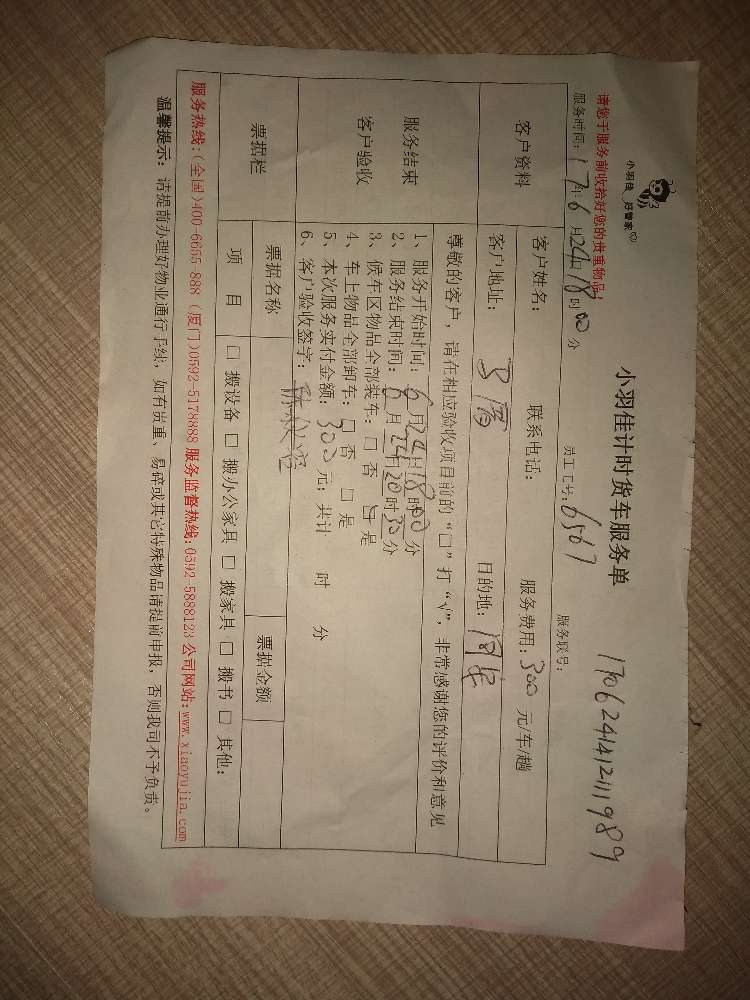 小羽佳 好管家
小羽佳计时货车服务单
1706241412111989
请您于服务前收拾好您的贵重物品!
服务时间：17年6月24日18时00分 员工工号：6567 服务联号：
客户资料
客户姓名： 联系电话： 服务费用：300元/车/趟
客户地址： 目的地：同安
服务结束
客户验收
尊敬的客户，请在相应验收项目前的“□”打“√”，非常感谢您的评价和意见
1、服务开始时间：6月24日18时00分
2、服务结束时间：6月24日20时30分
3、候车区物品全部装车：□ 否 □ 是
4、车上物品全部卸车：□ 否 □ 是
5、本次服务实付金额：300元；共计 时 分
6、客户验收签字：
票据栏
票据名称 票据金额
项 目 □ 搬设备 □ 搬办公家具 □ 搬家具 □ 搬书 □ 其他：
服务热线：(全国)400-6655-888 (厦门)0592-5178888 服务监督热线：0592-5888123 公司网站：www.xiaoyujia.com
温馨提示：请提前办理好物业通行手续，如有贵重、易碎或其它特殊物品请提前申报，否则我司不予负责。